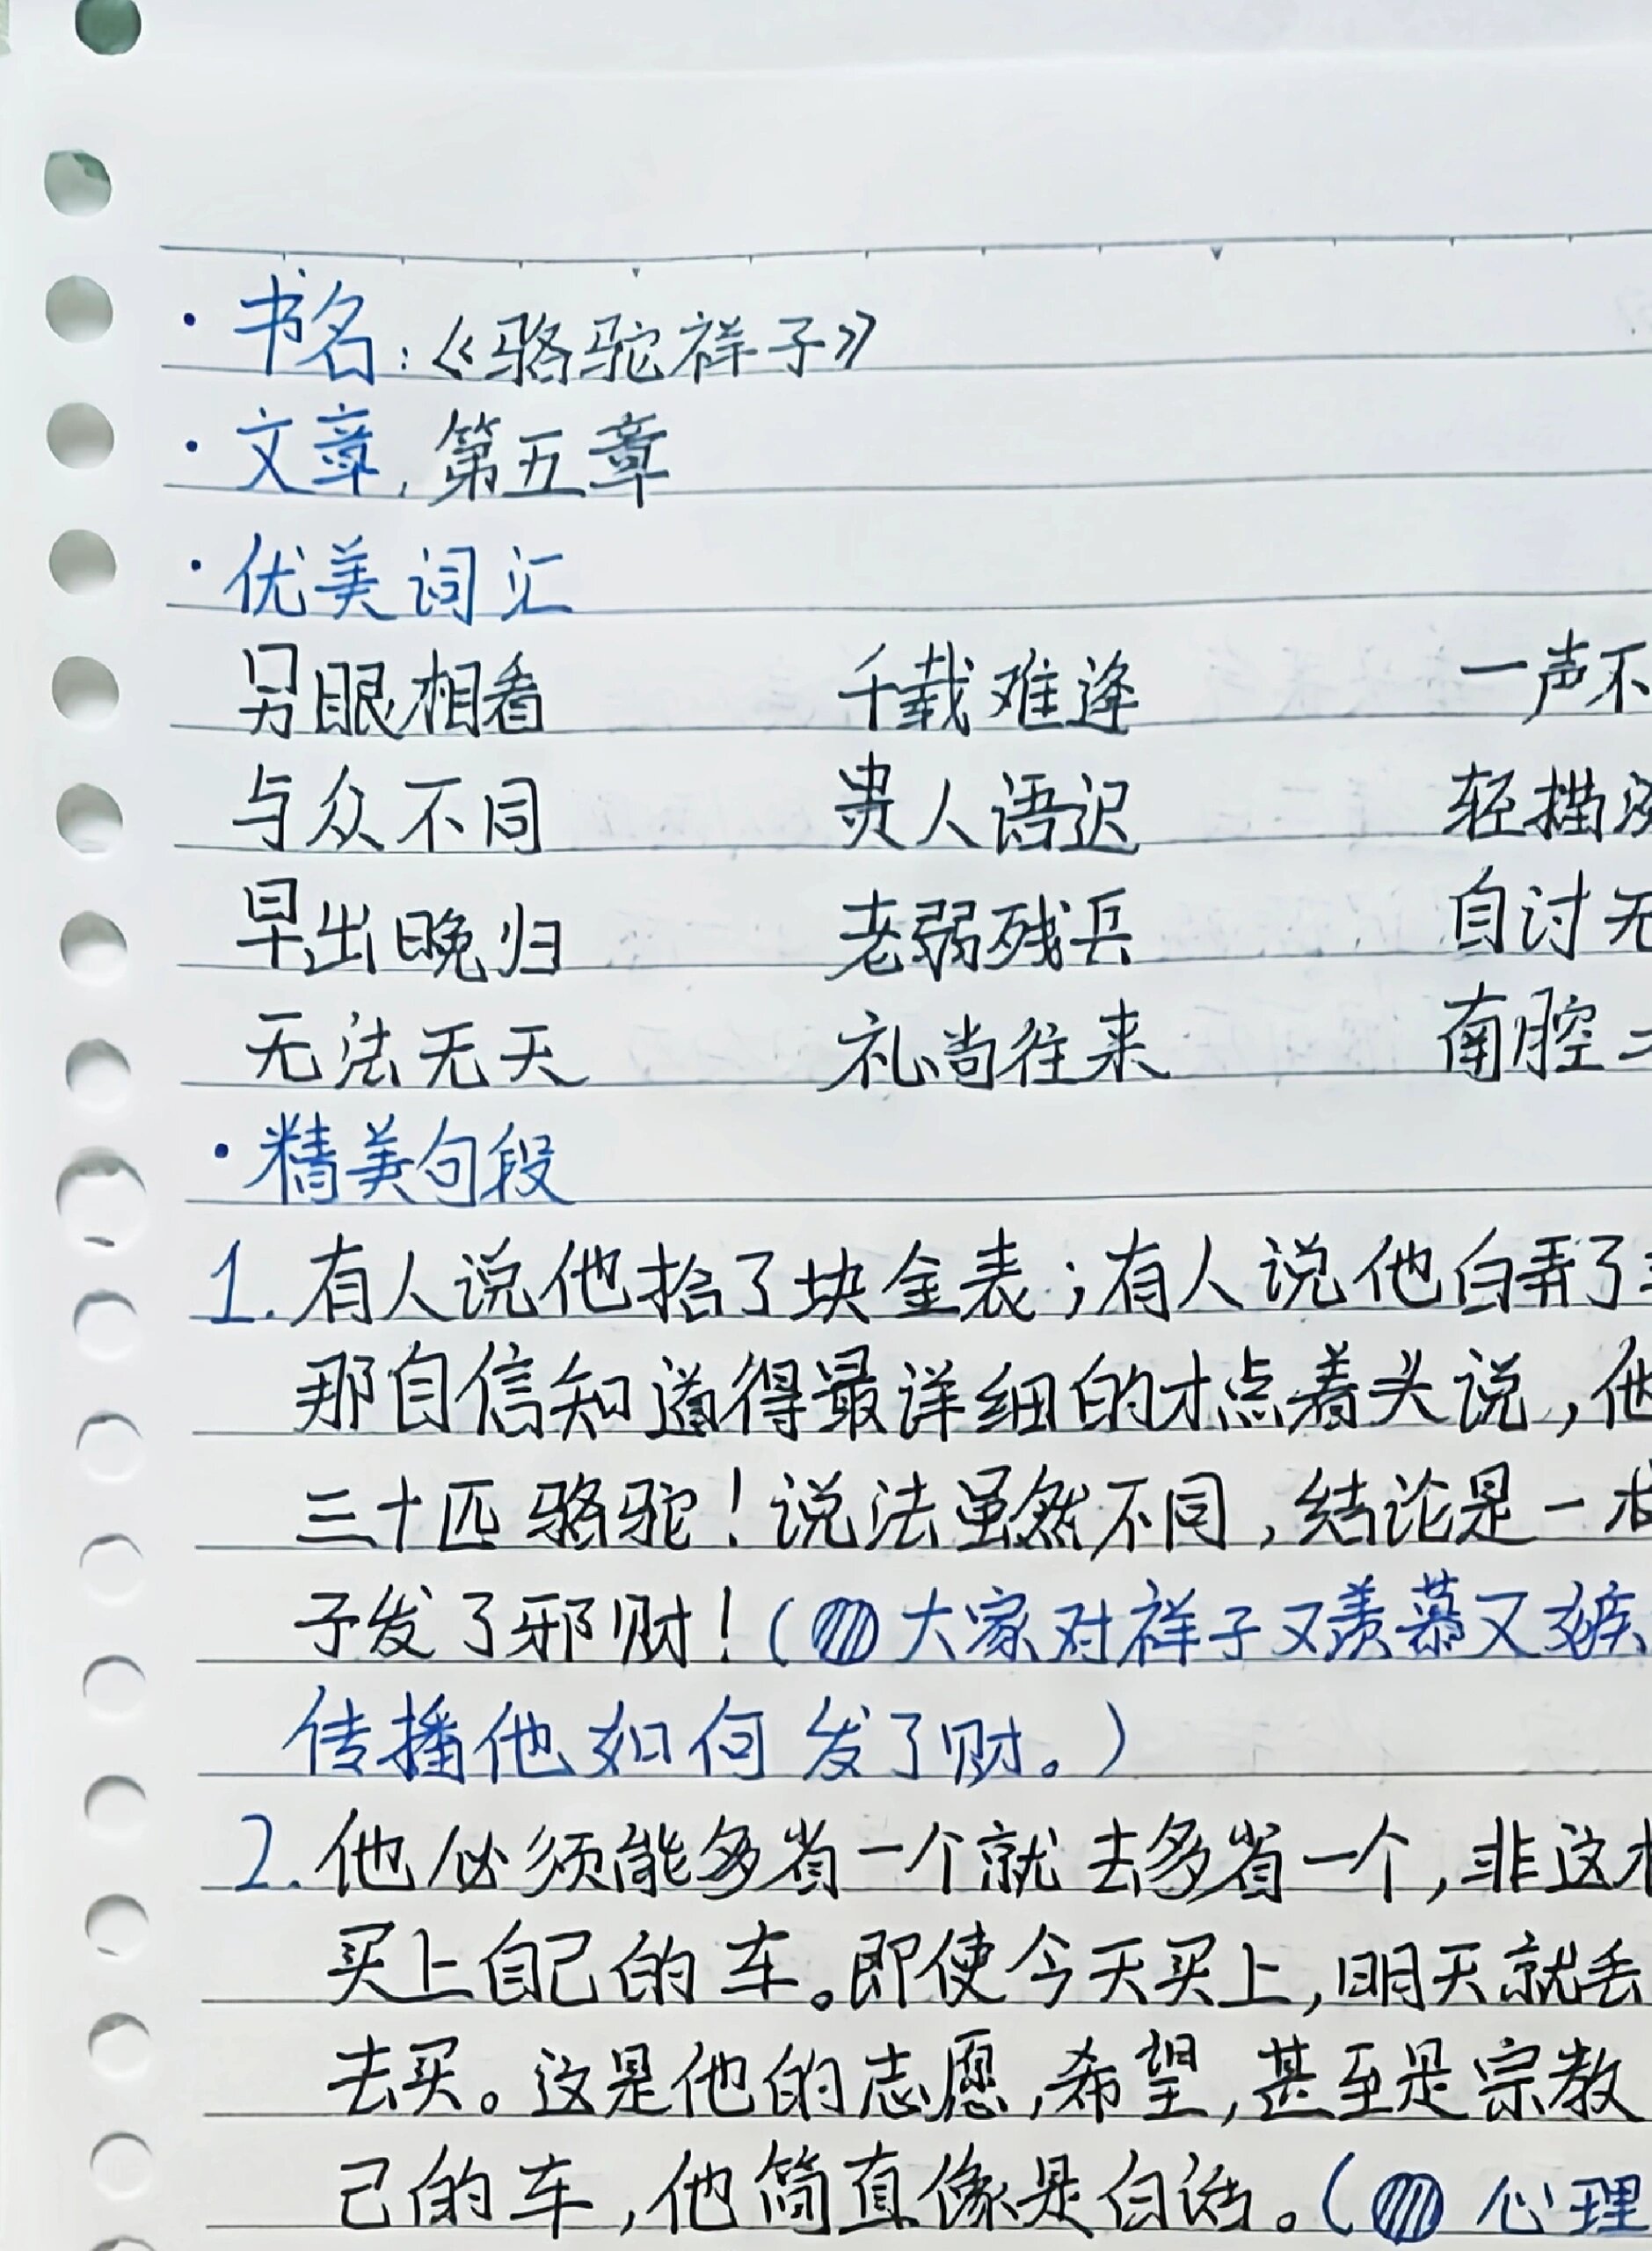 ·书名:《骆驼祥子》
·文章,第五章
·优美词汇
另眼相看 千载难逢 一声不
与众不同 贵人语迟 轻描
早出晚归 老弱残兵 自讨无
无法无天 礼尚往来 南腔
·精美句段
1.有人说他拾了块金表;有人说他白弄了
那自信知道得最详细的才点着头说,他
三十匹骆驼!说法虽然不同,结论是一
子发了邪财!(大家对祥子又羡慕又嫉
传播他如何发了财。)
2.他必须能多省一个就去多省一个,非这
买上自己的车。即使今天买上,明天就丢
去买。这是他的志愿,希望,甚至是宗教
己的车,他简直像是白活。(心理